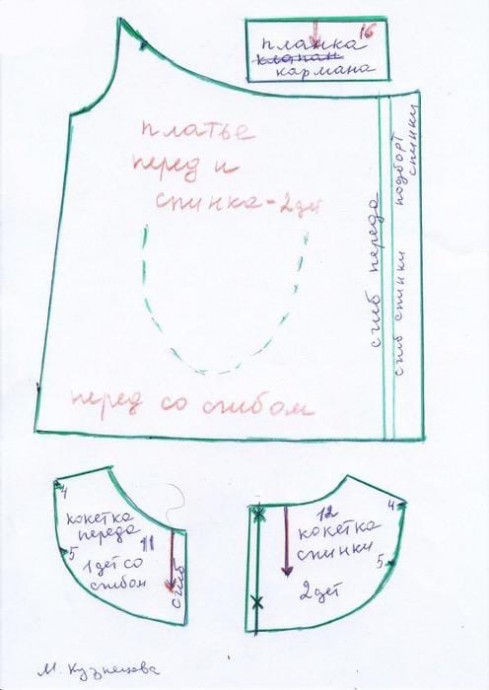 16
планка
клапан
кармана
платье
перед и
спинка - 2 дет
сгиб переда
сгиб спинки подборт спинки
перед со сгибом
4
кокетка
переда
11
5
1 дет со
сгибом
сгиб
12
кокетка
спинки
4
5
2 дет
М. Кузнецова